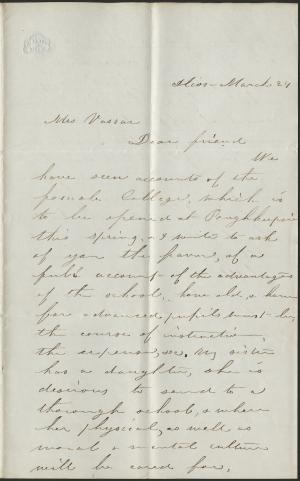 March 24
Mrs Vassar
Dear friend
We
have seen accounts of the
female College, which is
to be opened at Poughkeepsie
this spring, & write to ask
of you the favor, of a
full account of the advantages
of the school, how old, & how
far advanced pupils must be,
the course of instruction
the expense, &c. My sister
has a daughter, she is
desirous to send to a
thorough school, & where
her physcial, as well as
moral & mental culture
will be cared for,